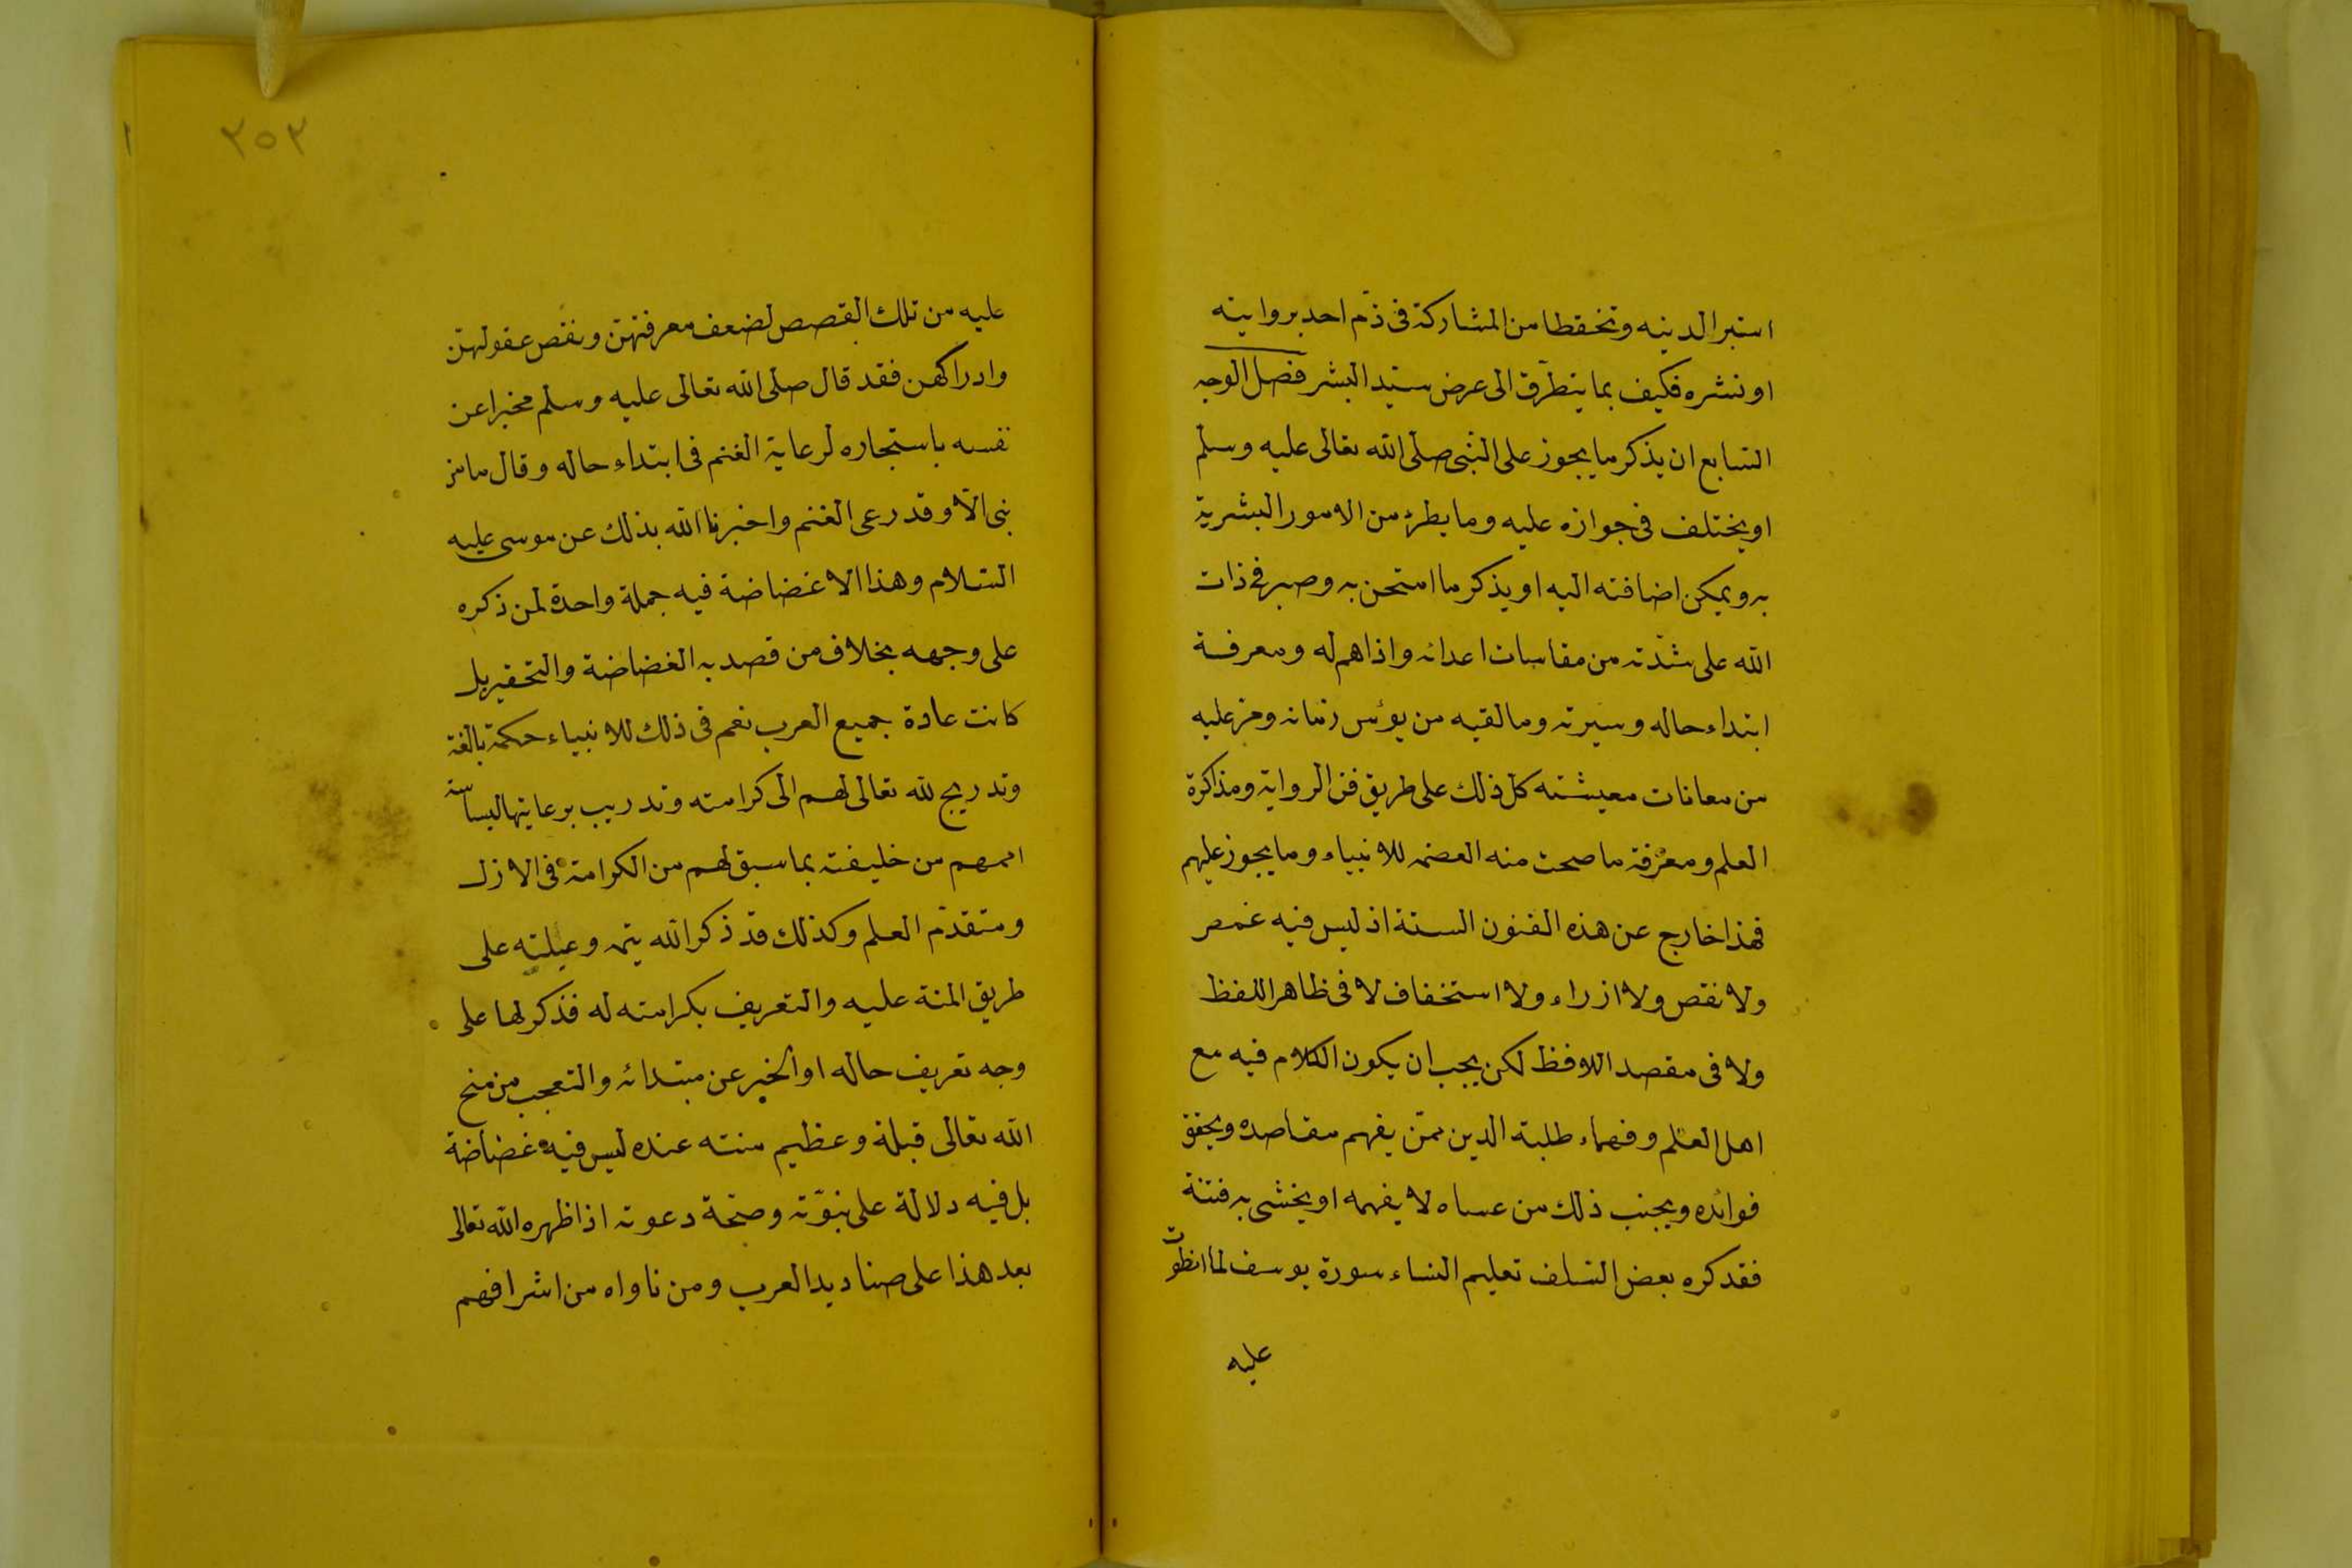 استبرالدينه وتحفظا من المشاركة فى ذم احد بروايته
او نشره فكيف بما يتطرق الى عرض سيد البشر فصل الوجه
السابع ان يذكر ما يجوز على النبى صلى الله تعالى عليه وسلم
او يختلف فى جوازه عليه وما يطرء من الامور البشرية
به ويمكن اضافته اليه او يذكر ما امتحن به وصبر فى ذات
الله على شدته من مقاسات اعدائه واذاهم له ومعرفة
ابتداء حاله وسيرته وما لقيه من بؤس زمانه ومر عليه
من معانات معيشته كل ذلك على طريق فن الرواية ومذاكرة
العلم ومعرفة ما صحت منه العصمه للانبياء وما يجوز عليهم
فهذا خارج عن هذه الفنون الستة اذ ليس فيه غمص
ولا نقص ولا ازراء ولا استخفاف لا فى ظاهر اللفظ
ولا فى مقصد اللافظ لكن يجب ان يكون الكلام فيه مع
اهل العلم وفهماء طلبة الدين ممن يفهم مقاصده ويحقق
فوائده ويجنب ذلك من عساه لا يفهمه او يخشى به فتنة
فقد كره بعض السلف تعليم النساء سورة يوسف لما انطوت
عليه
٢٥٣
عليه من تلك القصص لضعف معرفتهن ونقص عقولهن
وادراكهن فقد قال صلى الله تعالى عليه وسلم مخبرا عن
نفسه باستجاره لرعاية الغنم فى ابتداء حاله وقال ما من
نبى الا وقد رعى الغنم واخبرنا الله بذلك عن موسى عليه
السلام وهذا الا غضاضة فيه جملة واحدة لمن ذكره
على وجهه بخلاف من قصد به الغضاضة والتحقير بل
كانت عادة جميع العرب نعم فى ذلك للانبياء حكمة بالغة
وتدريج لله تعالى لهم الى كرامته وتدريب برعايتها ليساسة
اممهم من خليفته بما سبق لهم من الكرامة فى الازل
ومتقدم العلم وكذلك قد ذكر الله يتمه وعيلته على
طريق المنة عليه والتعريف بكرامته له فذكر لها على
وجه تعريف حاله او الخبر عن مبتدائه والتعجب من منح
الله تعالى قبلة وعظيم منته عنده ليس فيه غضاضة
بل فيه دلالة على نبوته وصحة دعوته اذ اظهره الله تعالى
بعد هذا على صناديد العرب ومن ناواه من اشرافهم